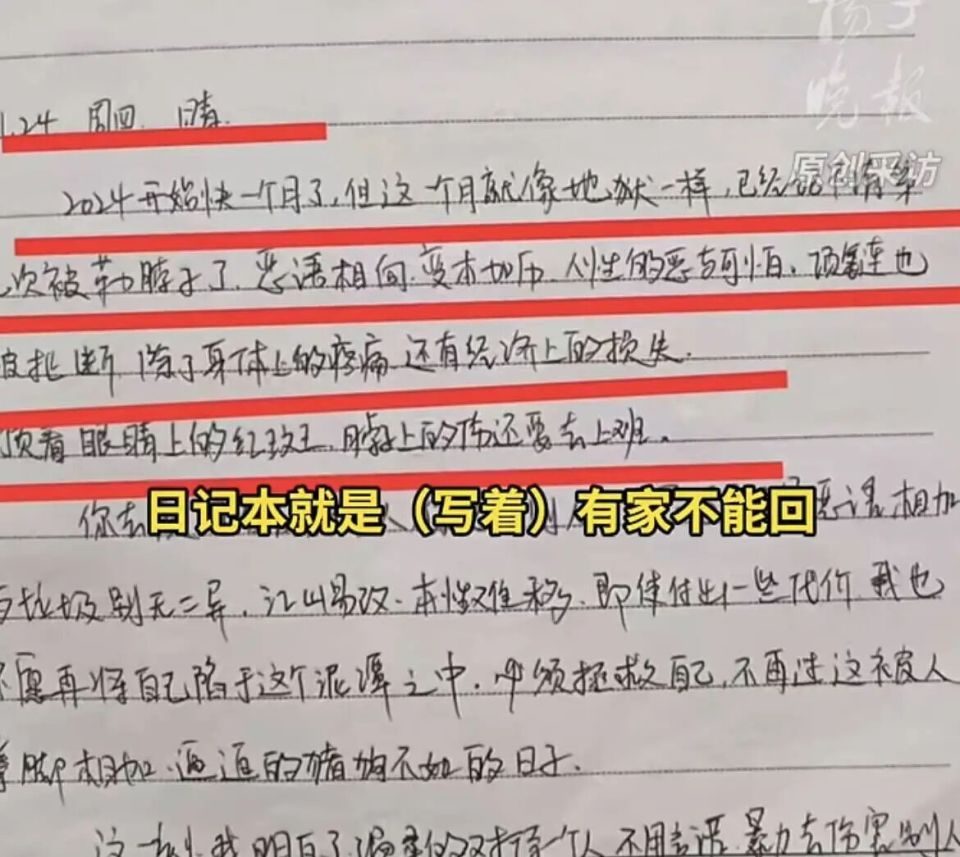 扬子
晚报
原创采访
1.24 周四. 晴.
2024开始快一个月了,但这一个月就像地狱一样,已经记不清第
次被勒脖子了.恶语相向.变本加厉.人性的恶与可怕.项链也
被扯断 除了身体上的疼痛 还有经济上的损失.
顶着眼睛上的红斑 脖子上的伤还要去上班。
日记本就是（写着）有家不能回
你 恶语相加
与垃圾别无二异,江山易改.本性难移.即使付出一些代价 我也
不愿再将自己陷于这个泥潭之中.必须拯救自己,不再过这被人
拳脚相加.逼逼的猪狗不如的日子.
这一刻我明白了 温柔的对待一个人 不用言语.暴力去伤害别人